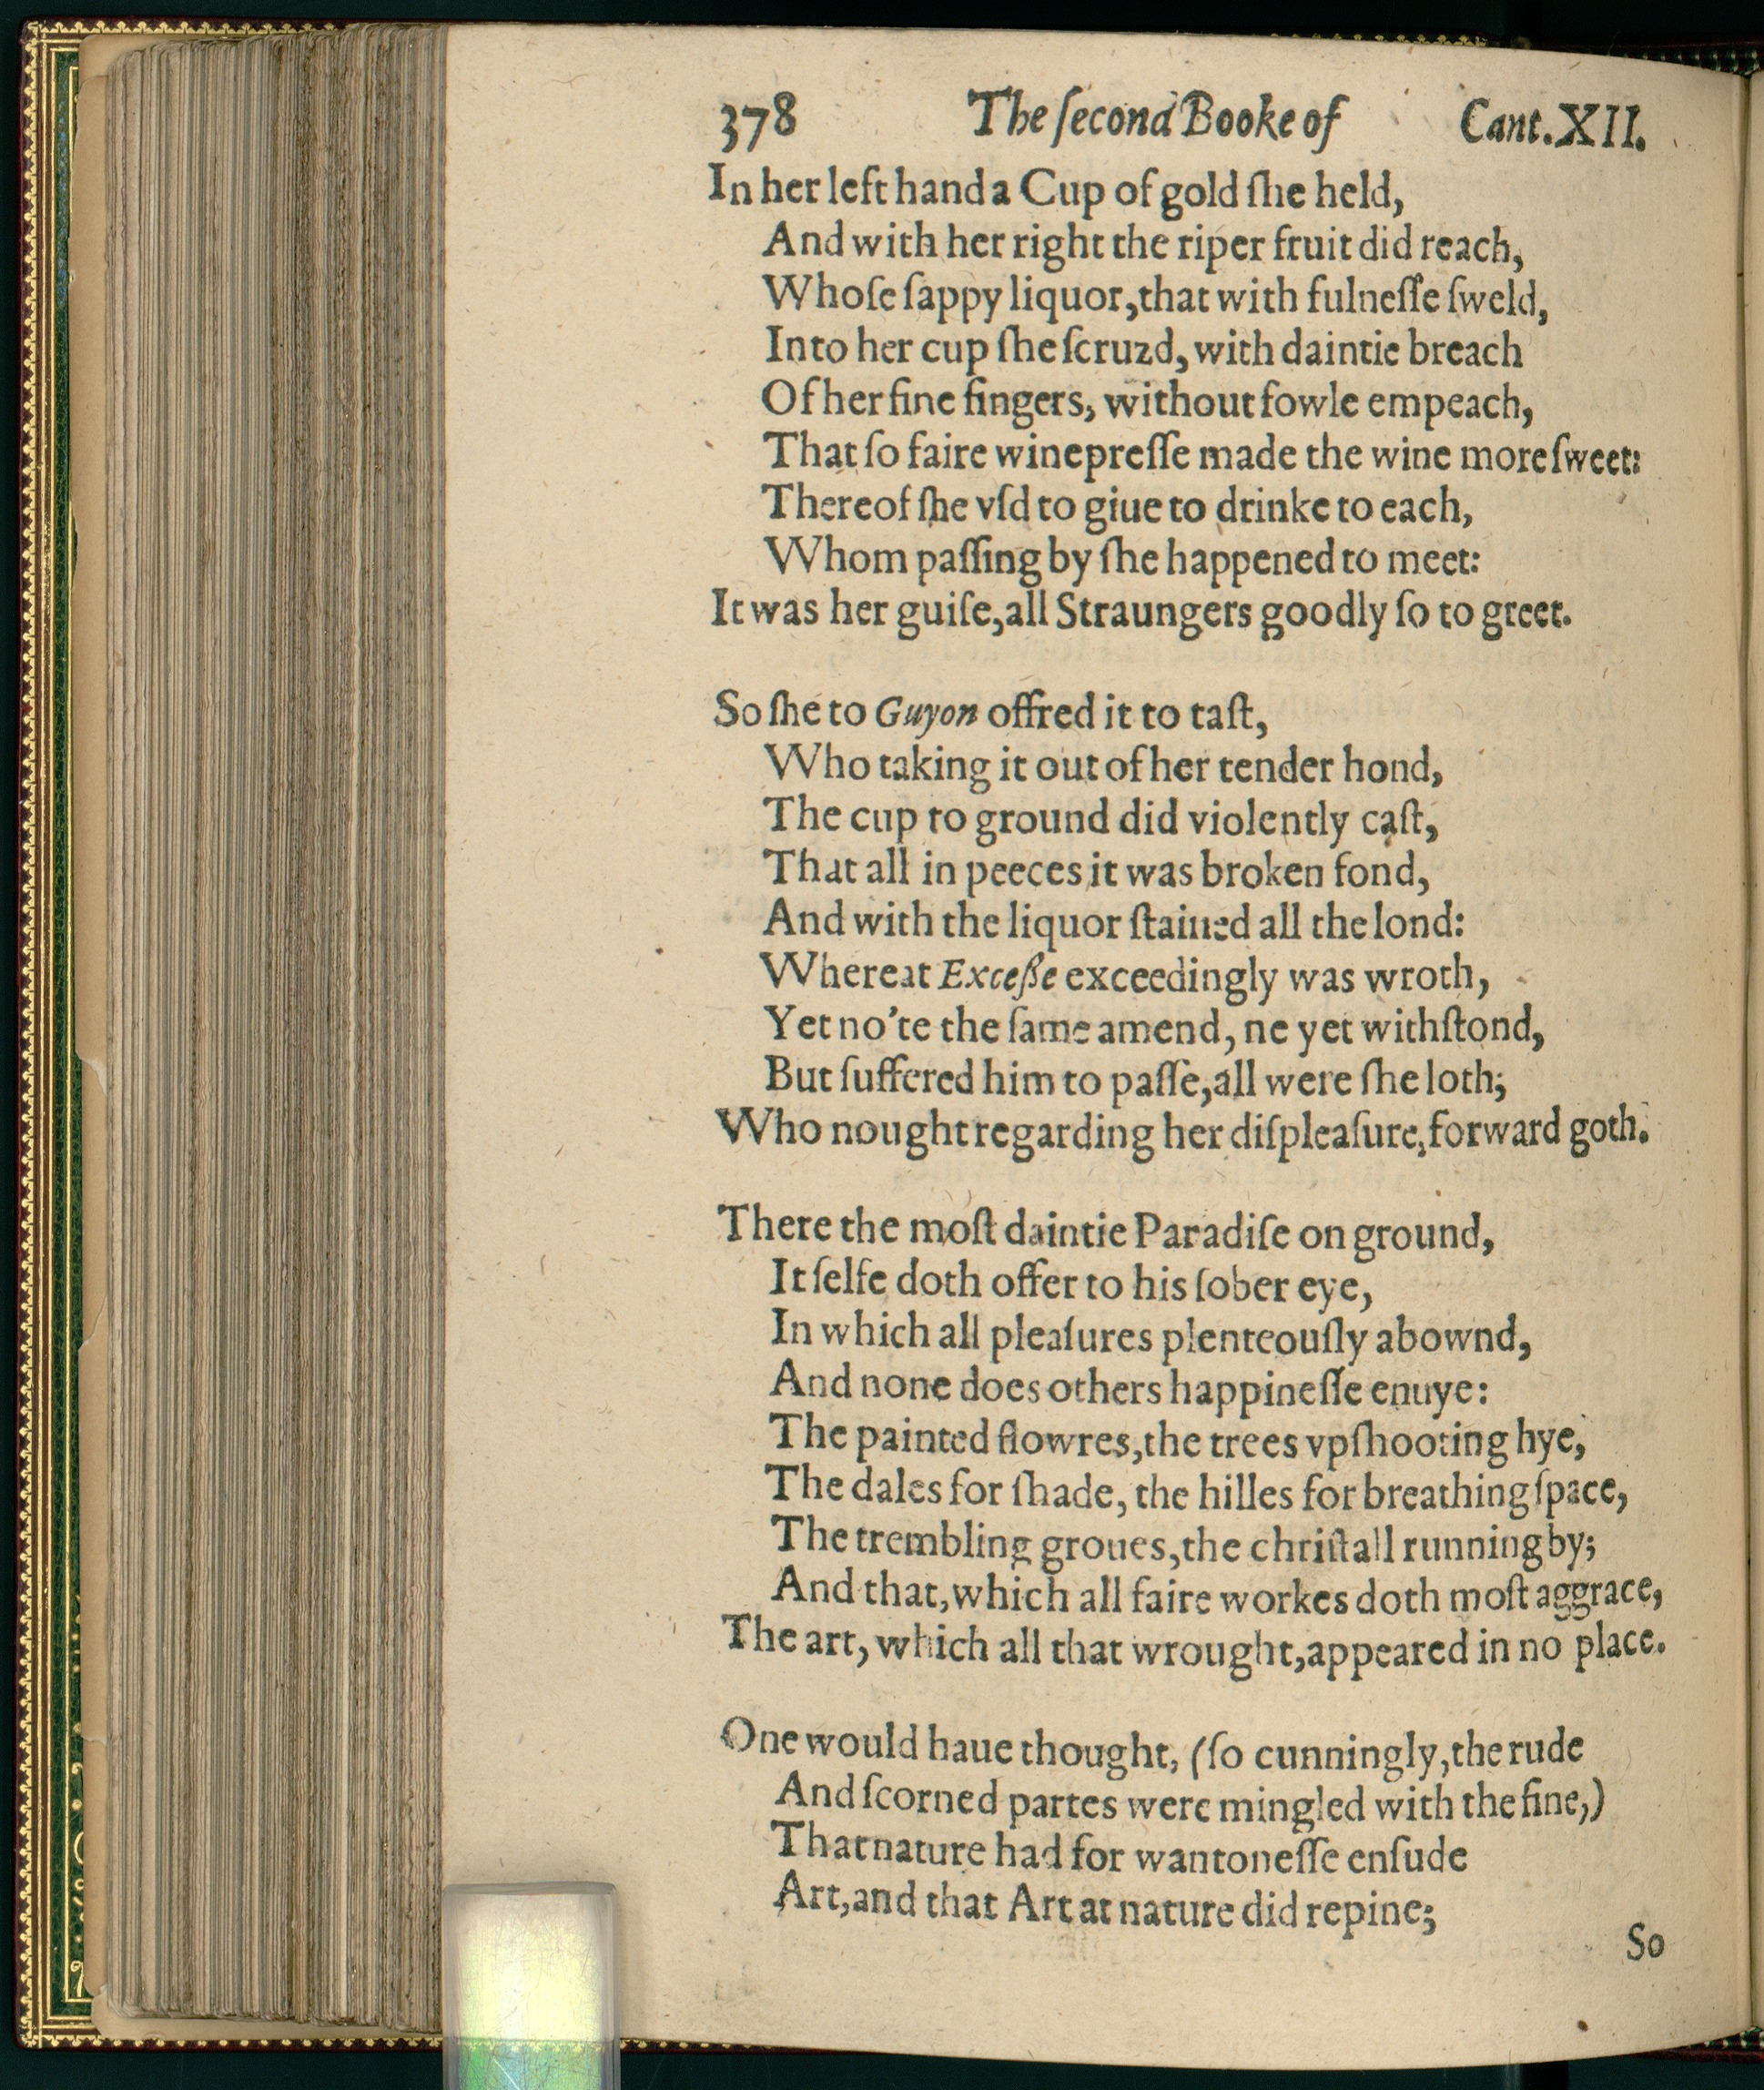 378 The ſecond Booke of Cant. XII.
In her left hand a Cup of gold ſhe held,
And with her right the riper fruit did reach,
Whoſe ſappy liquor, that with fulneſſe ſweld,
Into her cup ſhe ſcruzd, with daintie breach
Of her fine fingers, without fowle empeach,
That ſo faire winepreſſe made the wine more ſweet:
Thereof ſhe vſd to giue to drinke to each,
Whom paſſing by ſhe happened to meet:
It was her guiſe, all Straungers goodly ſo to greet.
So ſhe to Guyon offred it to taſt,
Who taking it out of her tender hond,
The cup to ground did violently caſt,
That all in peeces it was broken fond,
And with the liquor ſtained all the lond:
Whereat Exceße exceedingly was wroth,
Yet no'te the ſame amend, ne yet withſtond,
But ſuffered him to paſſe, all were ſhe loth;
Who nought regarding her diſpleaſure, forward goth.
There the moſt daintie Paradiſe on ground,
It ſelfe doth offer to his ſober eye,
In which all pleaſures plenteouſly abownd,
And none does others happineſſe enuye:
The painted flowres, the trees vpſhooting hye,
The dales for ſhade, the hilles for breathing ſpace,
The trembling groues, the chriſtall running by;
And that, which all faire workes doth moſt aggrace,
The art, which all that wrought, appeared in no place.
One would haue thought, (ſo cunningly, the rude
And ſcorned partes were mingled with the fine,)
That nature had for wantoneſſe enſude
Art, and that Art at nature did repine;
So